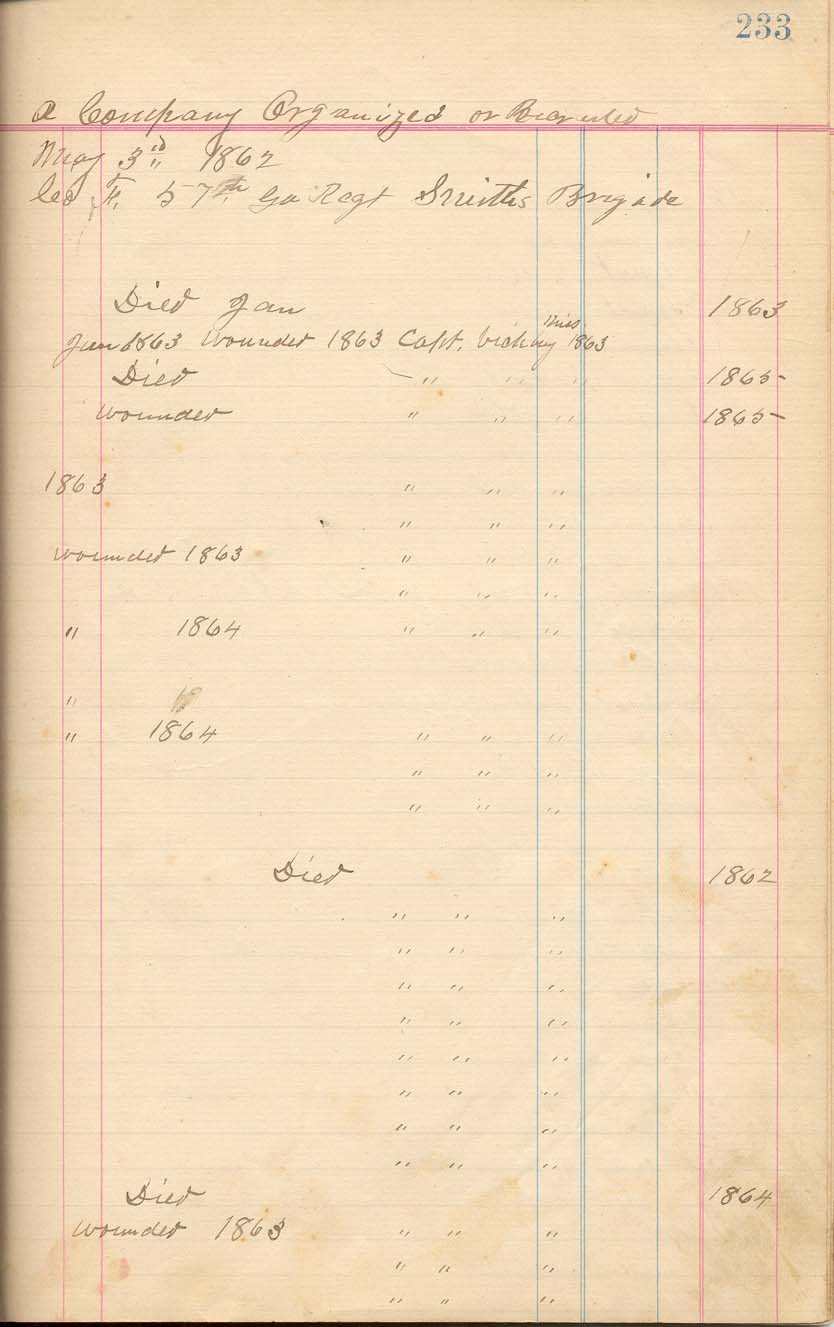 233
a Company Organized or Recruted
May 3rd 1862
Co F. 57th Ga Regt Smiths Brigade
Died Jan 1863
Miss
1863 Wounded 1863 Capt. Vicksburg 1863
Died " " " 1865
Wounded " " " 1865
1863 " " "
" " "
wounded 1863 " " "
" " "
" 1864 " " "
"
" 1864 " " "
" " "
" " "
Died 1862
" " "
" " "
" " "
" " "
" " "
" " "
" " "
" " "
Died 1864
Wounded 1863 " " "
" " "
" " "